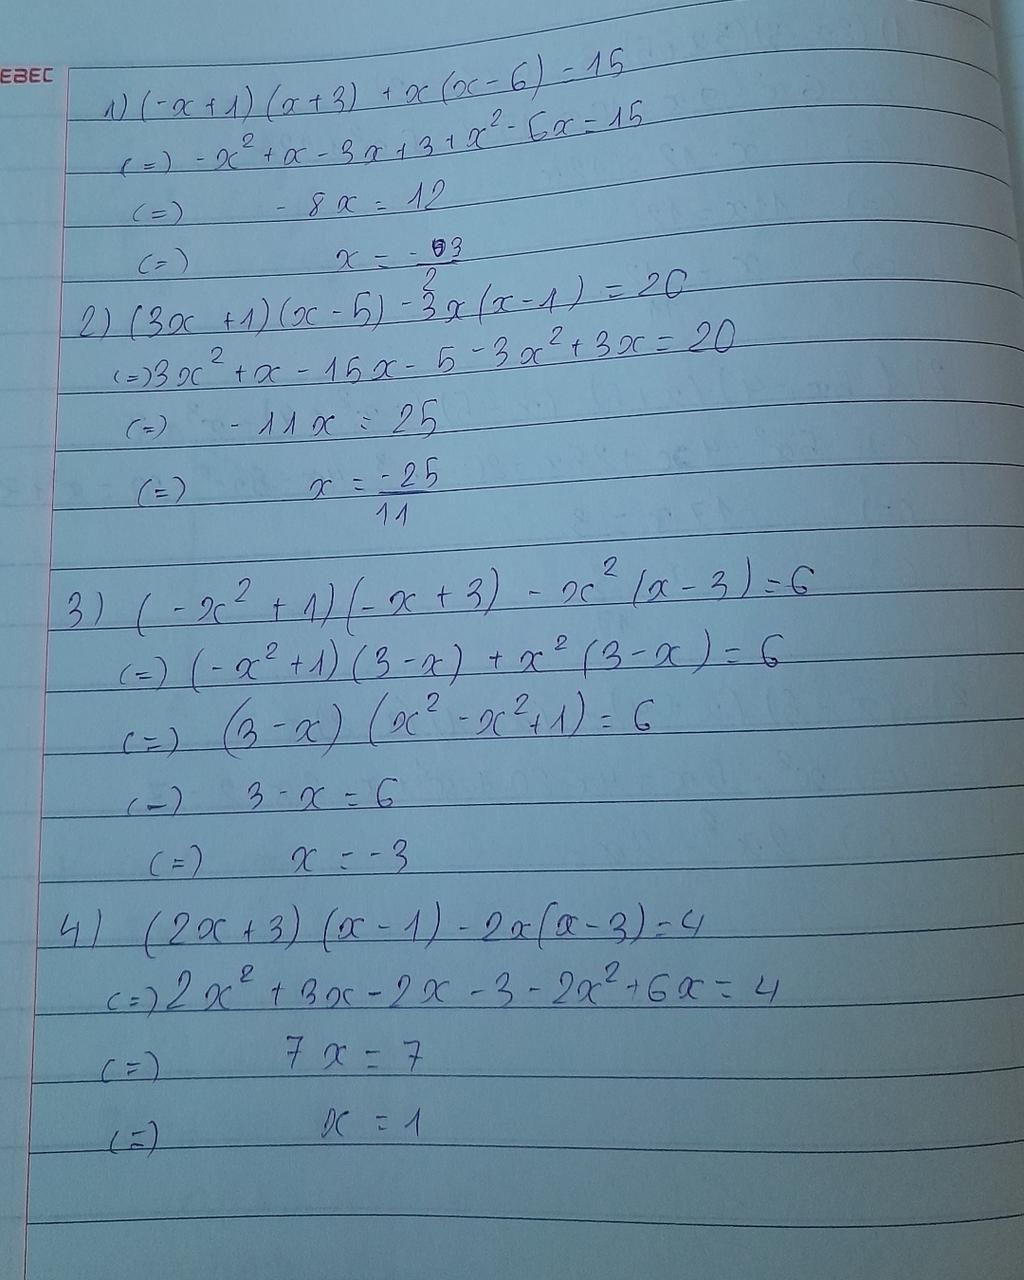 EBEC
1) (-x+1)(x+3) + x(x-6) = 15
(=) -x² + x - 3x + 3 + x² - 6x = 15
(=) - 8x = 12
(=) x = -3/2
2) (3x +1)(x-5) - 3x(x-1) = 20
(=) 3x² + x - 15x - 5 - 3x² + 3x = 20
(=) - 11x = 25
(=) x = -25/11
3) (-x² + 1)(-x + 3) - x² (x-3) = 6
(=) (-x² + 1)(3-x) + x² (3-x) = 6
(=) (3-x) (x² - x² + 1) = 6
(=) 3 - x = 6
(=) x = -3
4) (2x+3)(x-1) - 2x(x-3) = 4
(=) 2x² + 3x - 2x - 3 - 2x² + 6x = 4
(=) 7x = 7
(=) x = 1